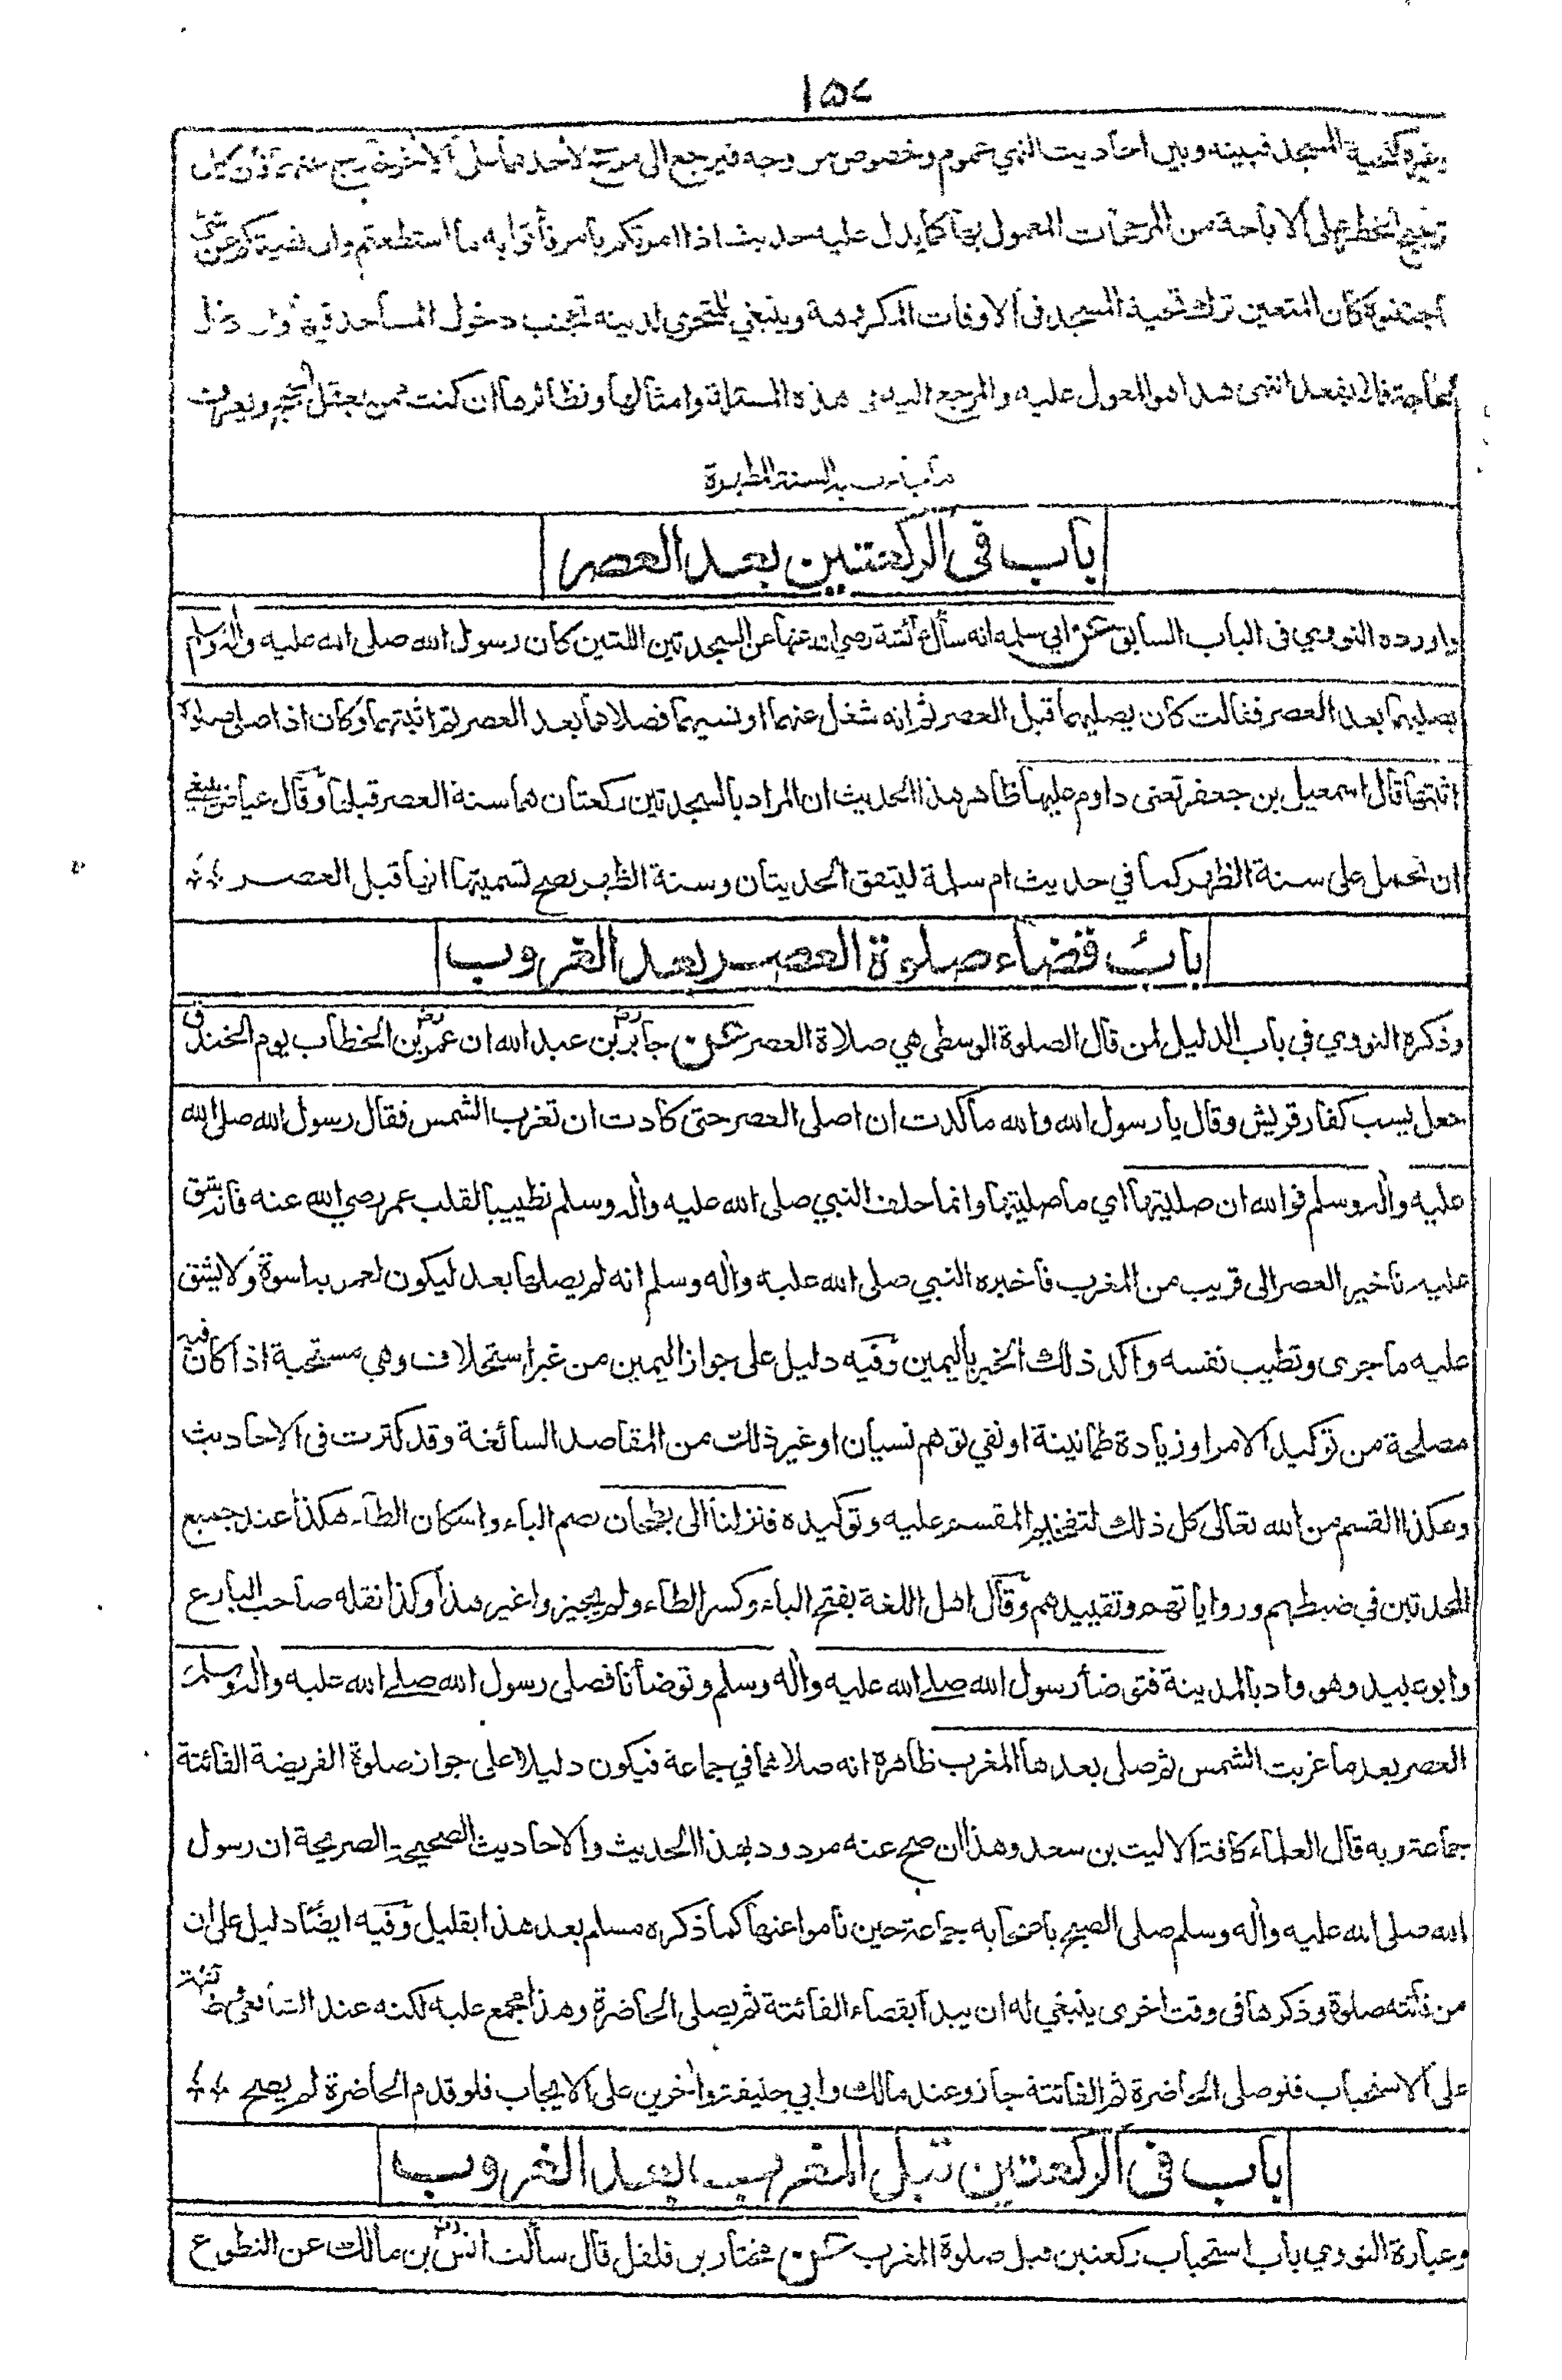 ١٥٧
وغيره كتحية المسجد فبينه وبين احاديث النهي عموم وخصوص من وجه فيرجع الى مرجح لاحدهما على الآخر
ترجيح الحظر على الاباحة من المرجحات المعمول بها كما يدل عليه حديث اذا امرتكم بأمر فأتوا به ما استطعتم وان نهيتكم عن شئ
اجتنبوه كان المتعين ترك تحية المسجد في الاوقات المكروهة وينبغي للمتحري لدينه تجنب دخول المساجد فيها
لحاجة فلا يفعل انتهى هذا هو المعول عليه والمرجع اليه في هذه المسئلة وامثالها ونظائرها ان كنت ممن يعقل الحجة ويعرف
السنة المطهرة
باب في الركعتين بعد العصر
واورده النووي في الباب السابق عن ابي سلمة انه سأل عائشة رضي الله عنها عن السجدتين اللتين كان رسول الله صلى الله عليه وآله وسلم
يصليهما بعد العصر فقالت كان يصليهما قبل العصر ثم انه شغل عنهما او نسيهما فصلاهما بعد العصر ثم اثبتهما وكان اذا صلى صلوة
اثبتها قال اسمعيل بن جعفر تعني داوم عليها ظاهر هذا الحديث ان المراد بالسجدتين ركعتان هما سنة العصر قبلها وقال عياض ينبغي
ان تحمل على سنة الظهر كما في حديث ام سلمة ليتفق الحديثان وسنة الظهر يصح تسميتها انها قبل العصر
باب قضاء صلوة العصر بعد الغروب
وذكره النووي في باب الدليل لمن قال الصلوة الوسطى هي صلاة العصر عن جابر رض بن عبد الله ان عمر رض بن الخطاب يوم الخندق
جعل يسب كفار قريش وقال يا رسول الله والله ما كدت ان اصلي العصر حتى كادت ان تغرب الشمس فقال رسول الله صلى الله
عليه وآله وسلم فوالله ان صليتها اي ما صليتها وانما حلف النبي صلى الله عليه وآله وسلم تطييبا لقلب عمر رضي الله عنه فانه شق
عليه تأخير العصر الى قريب من المغرب فأخبره النبي صلى الله عليه وآله وسلم انه لم يصلها بعد ليكون لعمر به اسوة ولا يشق
عليه ما جرى وتطيب نفسه واكد ذلك الخبر باليمين وفيه دليل على جواز اليمين من غير استحلاف وهي مستحبة اذا كان فيه
مصلحة من توكيد الامر او زيادة طمانينة او نفي توهم نسيان او غير ذلك من المقاصد السائغة وقد كثرت في الاحاديث
وهكذا القسم من الله تعالى كل ذلك لتفخيم المقسم عليه وتوكيده فنزلنا الى بطحان بضم الباء واسكان الطاء هكذا عند جميع
المحدثين في ضبطهم ورواياتهم وتقييدهم وقال اهل اللغة بفتح الباء وكسر الطاء ولم يجيزوا غير هذا وكذا نقله صاحب البارع
وابو عبيد وهو واد بالمدينة فتوضأ رسول الله صلى الله عليه وآله وسلم وتوضأنا فصلى رسول الله صلى الله عليه وآله وسلم
العصر بعد ما غربت الشمس ثم صلى بعدها المغرب ظاهره انه صلاهما في جماعة فيكون دليلا على جواز صلوة الفريضة الفائتة
جماعة وبه قال العلماء كافة الا الليث بن سعد وهذا ان صح عنه مردود بهذا الحديث والاحاديث الصحيحة الصريحة ان رسول
الله صلى الله عليه وآله وسلم صلى الصبح باصحابه جماعة حين ناموا عنها كما ذكره مسلم بعد هذا بقليل وفيه ايضا دليل على ان
من فاتته صلوة وذكرها في وقت اخرى ينبغي له ان يبدأ بقضاء الفائتة ثم يصلي الحاضرة وهذا مجمع عليه لكنه عند الشافعي وطائفة
على الاستحباب فلو صلى الحاضرة ثم الفائتة جاز وعند مالك وابي حنيفة وآخرين على الايجاب فلو قدم الحاضرة لم يصح
باب في الركعتين قبل المغرب بعد الغروب
وعبارة النووي باب استحباب ركعتين قبل صلوة المغرب عن مختار بن فلفل قال سألت انس رض بن مالك عن التطوع